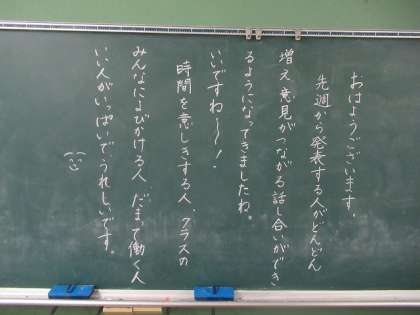 おはようございます。
先週から発表する人がどんどん
増え意見がつながる話し合いができ
るようになってきましたね。
いいですね〜！
時間を意しきする人、クラスの
みんなによびかける人、だまって働く人
いい人がいっぱいで、うれしいです。